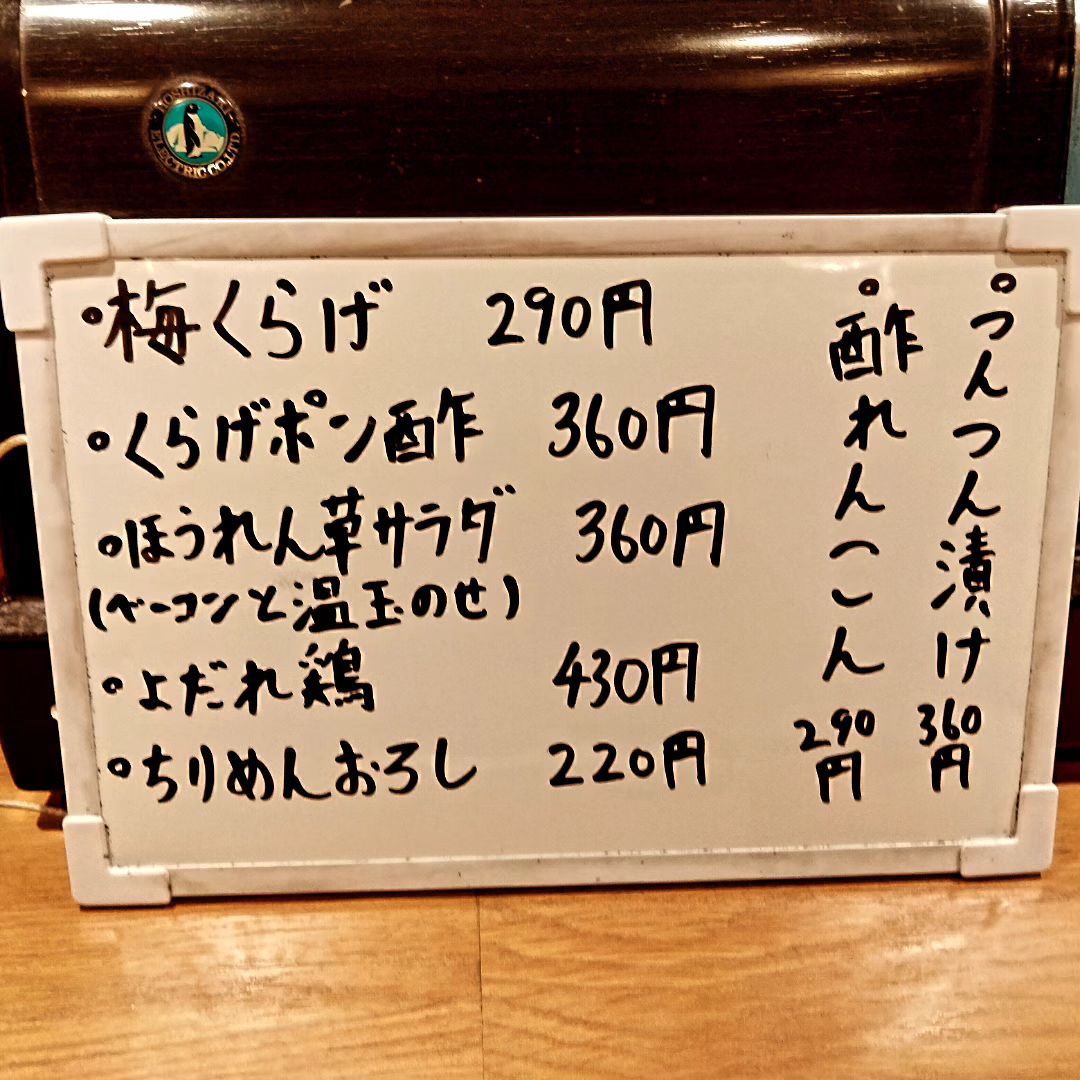 HOSHIZAKI ELECTRIC CO.,LTD.
・梅くらげ 290円
・くらげポン酢 360円
・ほうれん草サラダ 360円
(ベーコンと温玉のせ)
・よだれ鶏 430円
・ちりめんおろし 220円
・つんつん漬け 360円
・酢れんこん 290円